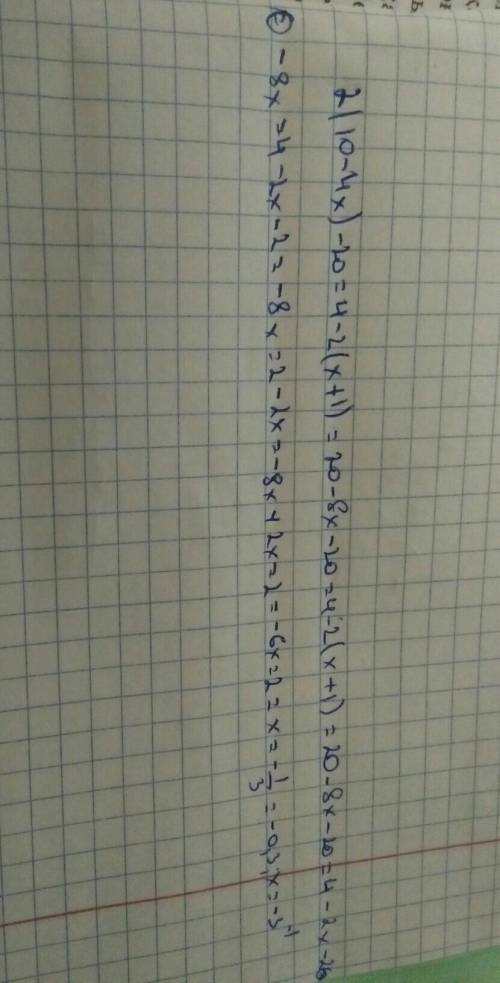 2(10-4x)-20=4-2(x+1)=20-8x-20=4-2(x+1)=20-8x-20=4-2x-2
⊜-8x=4-2x-2=-8x=2-2x=-8x+2x=2=-6x=2=x=-1/3=-0,3; x=-3⁻¹